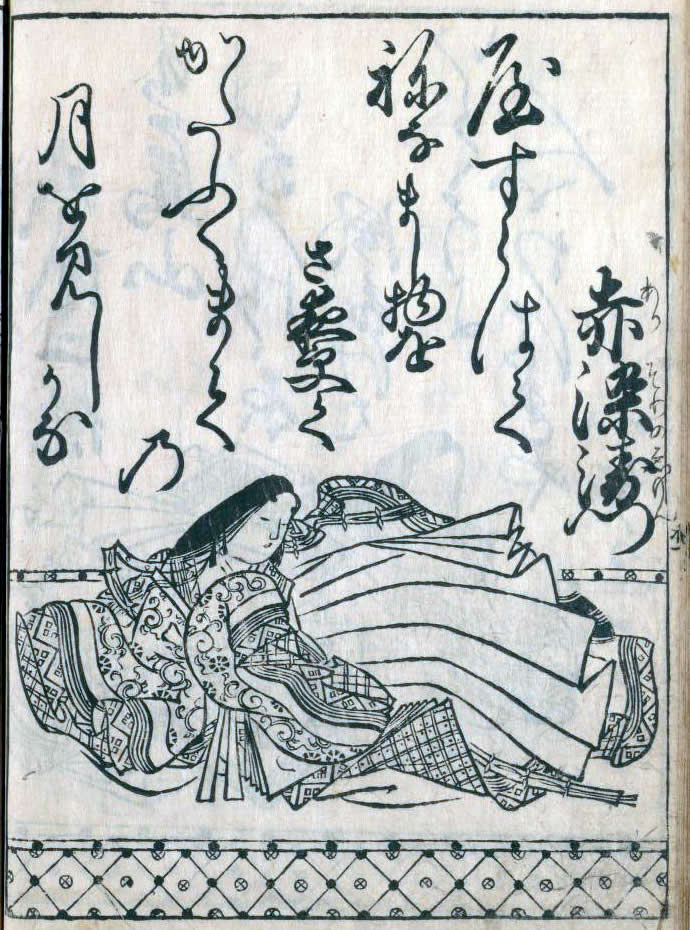 赤染衛門
あかそめゑもん
屋すらはて
祢なまし物を
さ夜更て
かたふくまて
乃
月を見しかな